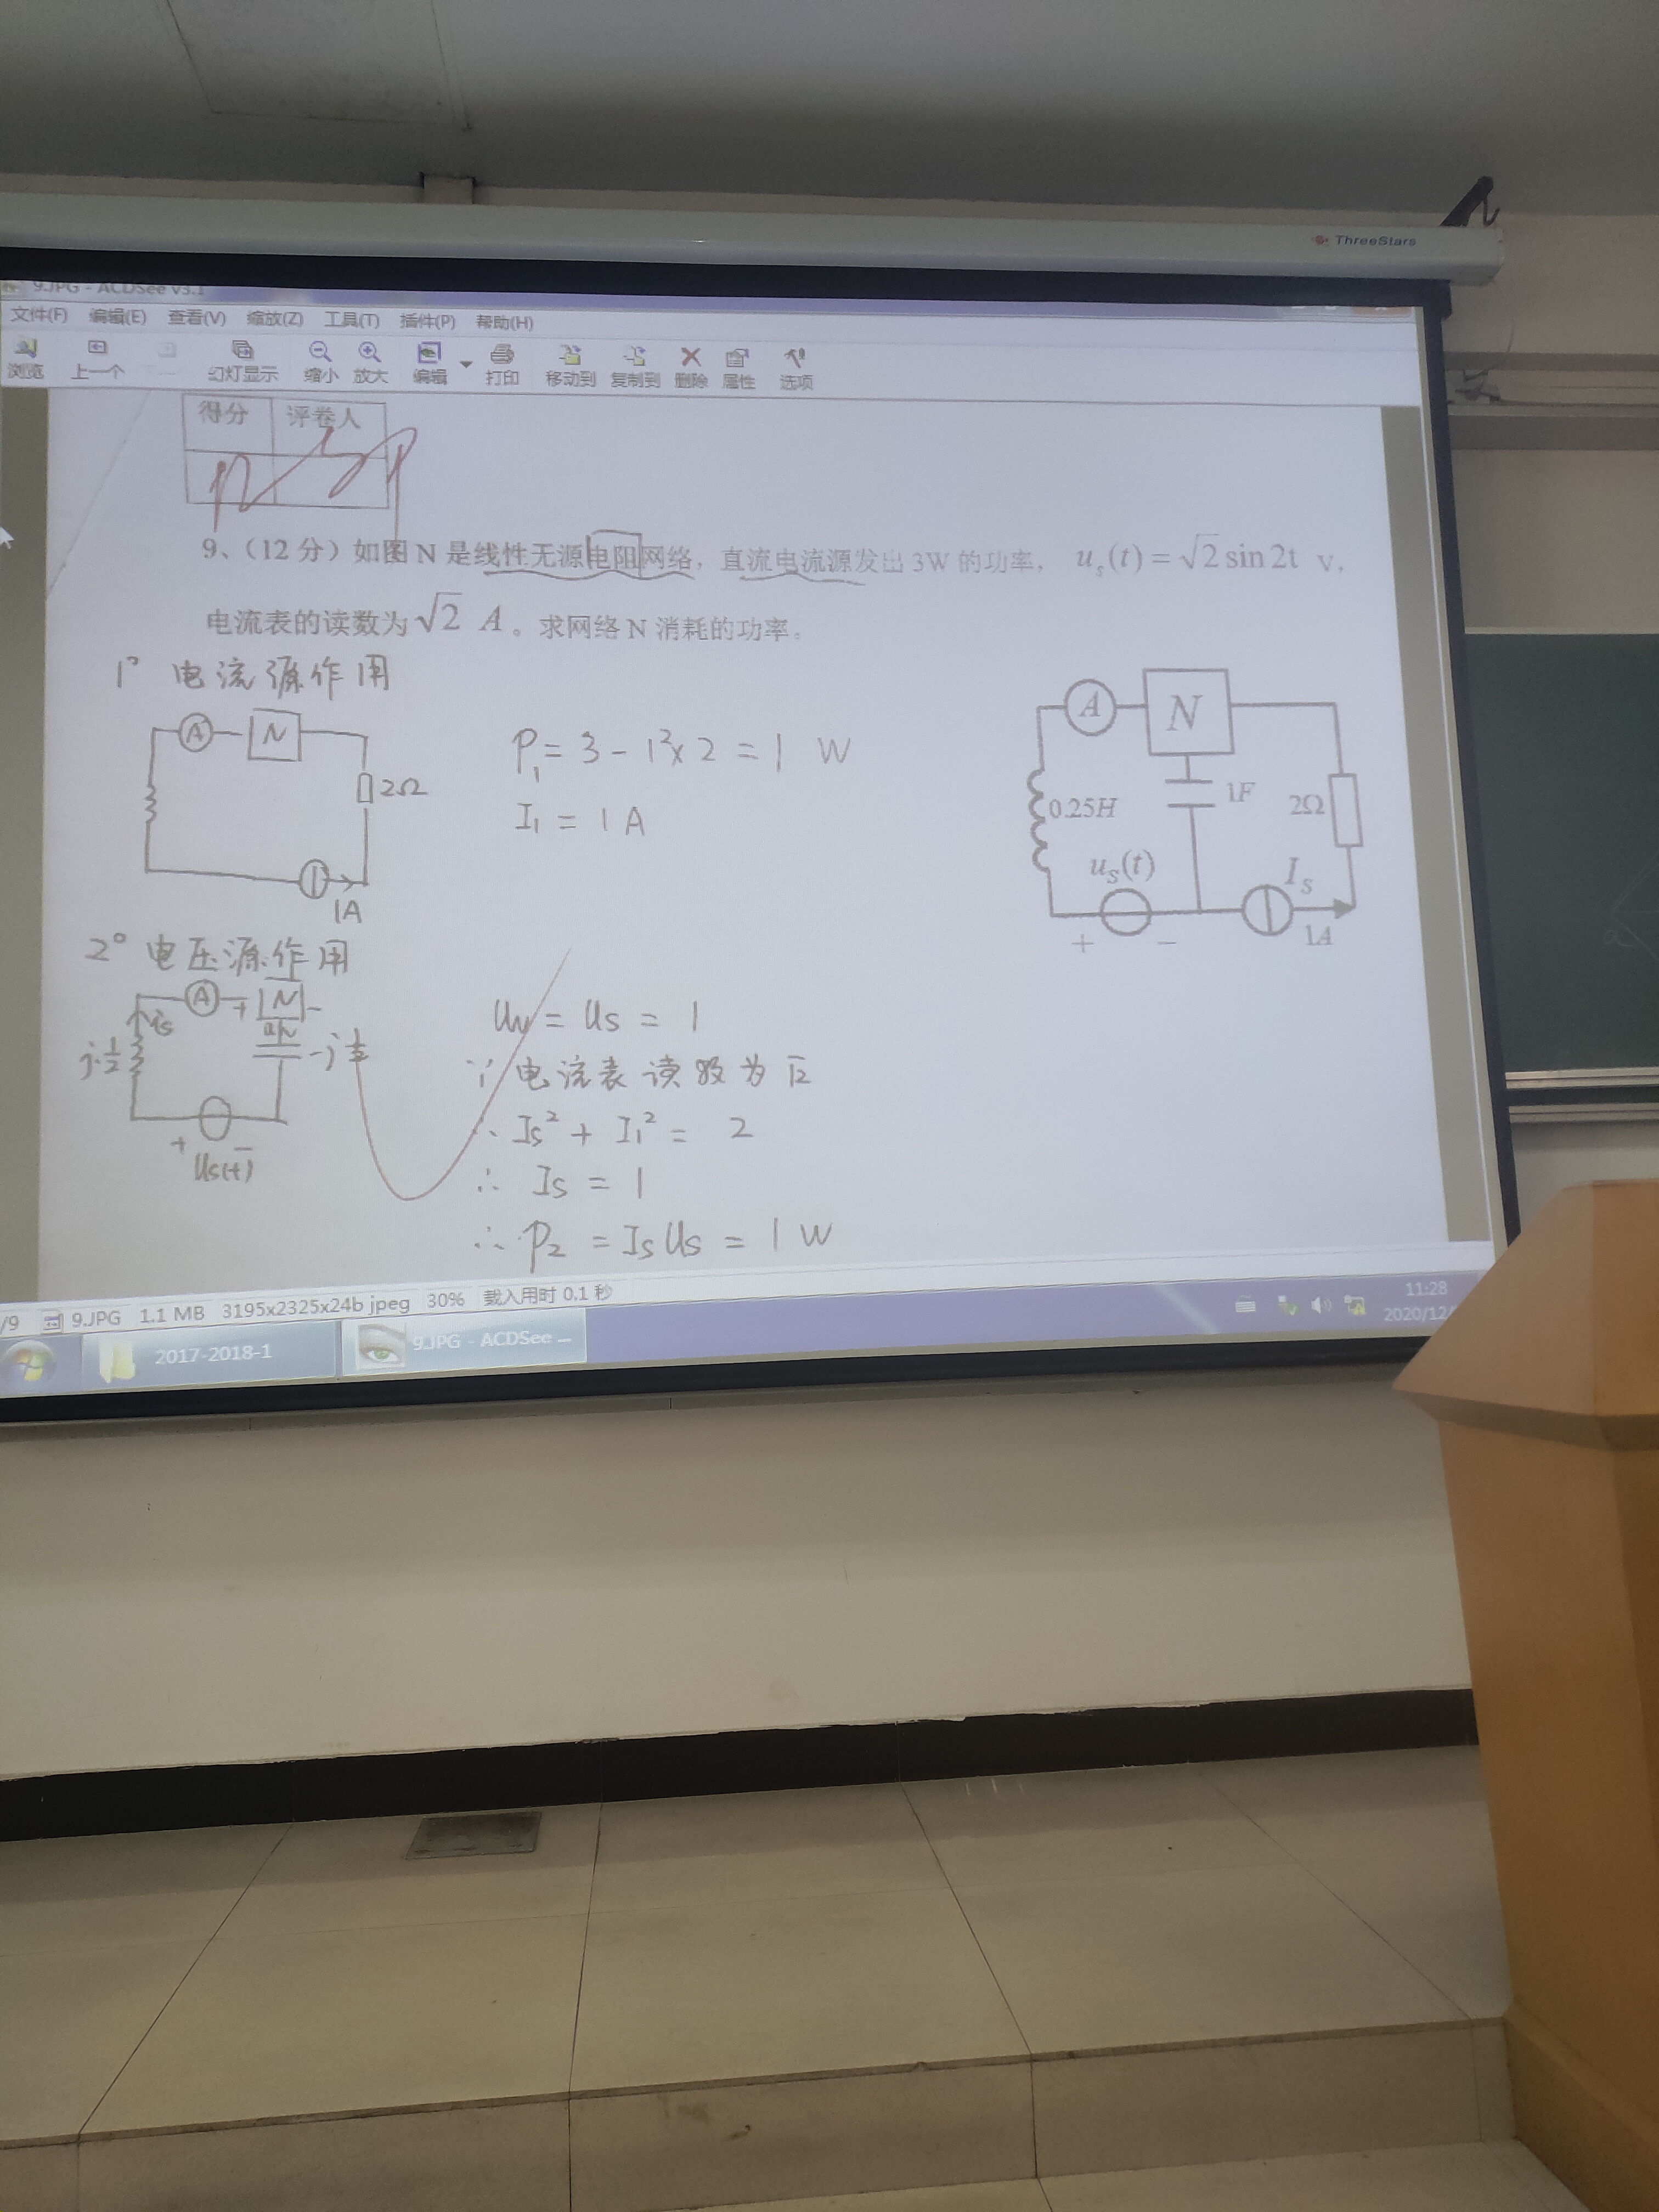 ThreeStars
9.JPG - ACDSee v3.1
文件(F) 编辑(E) 查看(V) 缩放(Z) 工具(T) 插件(P) 帮助(H)
浏览 上一个 幻灯显示 缩小 放大 编辑 打印 移动到 复制到 删除 属性 选项
得分 评卷人
9、(12 分) 如图 N 是线性无源电阻网络，直流电流源发出 3W 的功率， u_s(t) = √2 sin 2t v，
电流表的读数为 √2 A 。求网络 N 消耗的功率。
1° 电流源作用
A N
2Ω
1A
P₁ = 3 - 1²×2 = 1 W
I₁ = 1 A
A N
0.25H 1F 2Ω
u_s(t) I_s
+ - 1A
2° 电压源作用
A + N -
i_s u_N
j·½
+ -
u_s(t)
U_N = U_s = 1
∵ 电流表读数为 √2
∴ I_s² + I₁² = 2
∴ I_s = 1
∴ P₂ = I_s U_s = 1 W
/9 9.JPG 1.1 MB 3195x2325x24b jpeg 30% 载入用时 0.1 秒
2017-2018-1 9.JPG - ACDSee ...
11:28
2020/12/